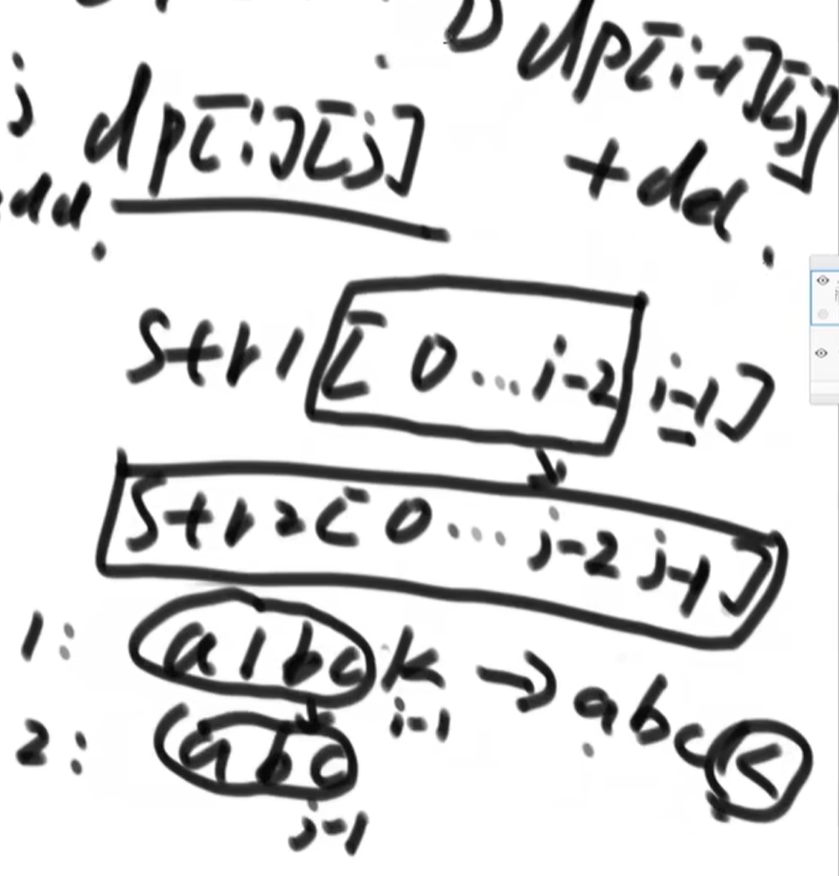 D dp[i-1][j]
j dp[i][j]
+ del.
add.
str1[0...i-2 i-1]
str2[0...j-2 j-1]
1: a1bck → abck
i-1
2: abc
j-1